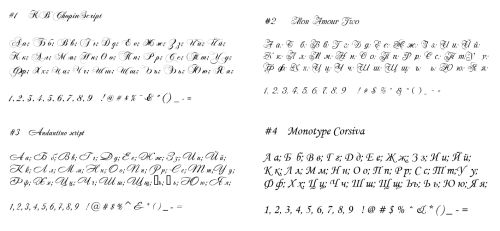 #1 H.B. Chopin Script
Аа; Бб; Вв; Гг; Дд; Ее; Жж; Зз; Ии; Йй;
Кк; Лл; Мм; Нн; Оо; Пп; Рр; Сс; Тт; Уу;
Фф; Хх; Цц; Чч; Шш; Щщ; Ъъ; Ьь; Юю; Яя;
1, 2, 3, 4, 5, 6, 7, 8, 9 ! @ # $ % ^ & * ( ) _ - =
#2 Mon Amour Two
Аа; Бб; Вв; Гг; Дд; Ее; Жж; Зз; Ии; Йй;
Кк; Лл; Мм; Нн; Оо; Пп; Рр; Сс; Тт; Уу;
Фф; Хх; Цц; Чч; Шш; Щщ; ъ; ь; Юю; Яя;
1, 2, 3, 4, 5, 6, 7, 8, 9 ! # $ % ^ & * ( ) _ - =
#3 Andantino script
Аа; Бб; Вв; Гг; Дд; Ее; Жж; Зз; Ии; Йй;
Кк; Лл; Мм; Нн; Оо; Пп; Рр; Сс; Тт; Уу;
Фф; Хх; Цц; Чч; Шш; Щщ; ъ; ь; Юю; Яя;
1, 2, 3, 4, 5, 6, 7, 8, 9 ! @ # $ % ^ & * ( ) _ - =
#4 Monotype Corsiva
Аа; Бб; Вв; Гг; Дд; Ее; Жж; Зз; Ии; Йй;
Кк; Лл; Мм; Нн; Оо; Пп; Рр; Сс; Тт; Уу;
Фф; Хх; Цц; Чч; Шш; Щщ; Ъъ; Ьь; Юю; Яя;
1, 2, 3, 4, 5, 6, 7, 8, 9 ! @ # $ % ^ & * ( ) _ - =